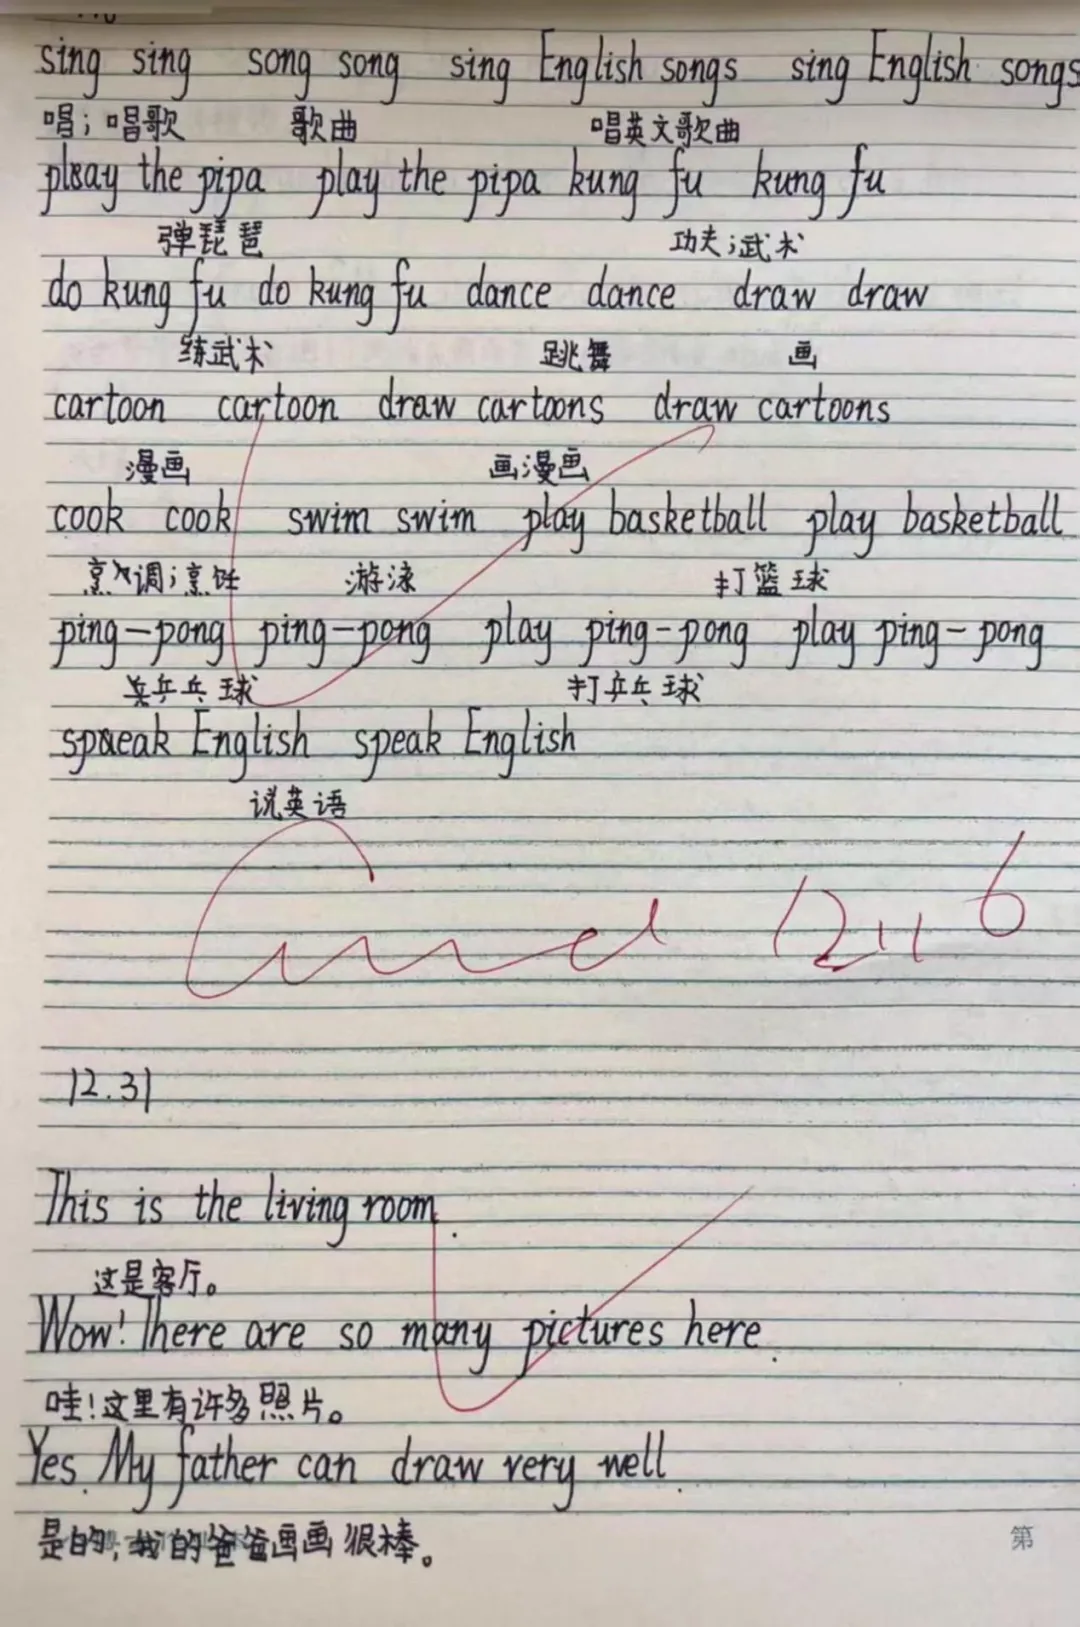 sing sing song song sing English songs sing English songs
唱；唱歌 歌曲 唱英文歌曲
play the pipa play the pipa kung fu kung fu
弹琵琶 功夫；武术
do kung fu do kung fu dance dance draw draw
练武术 跳舞 画
cartoon cartoon draw cartoons draw cartoons
漫画 画漫画
cook cook swim swim play basketball play basketball
烹调；烹饪 游泳 打篮球
ping-pong ping-pong play ping-pong play ping-pong
乒乓球 打乒乓球
speak English speak English
说英语
12.31
This is the living room.
这是客厅。
Wow! There are so many pictures here.
哇!这里有许多照片。
Yes. My father can draw very well.
是的,我的爸爸画画很棒。
第